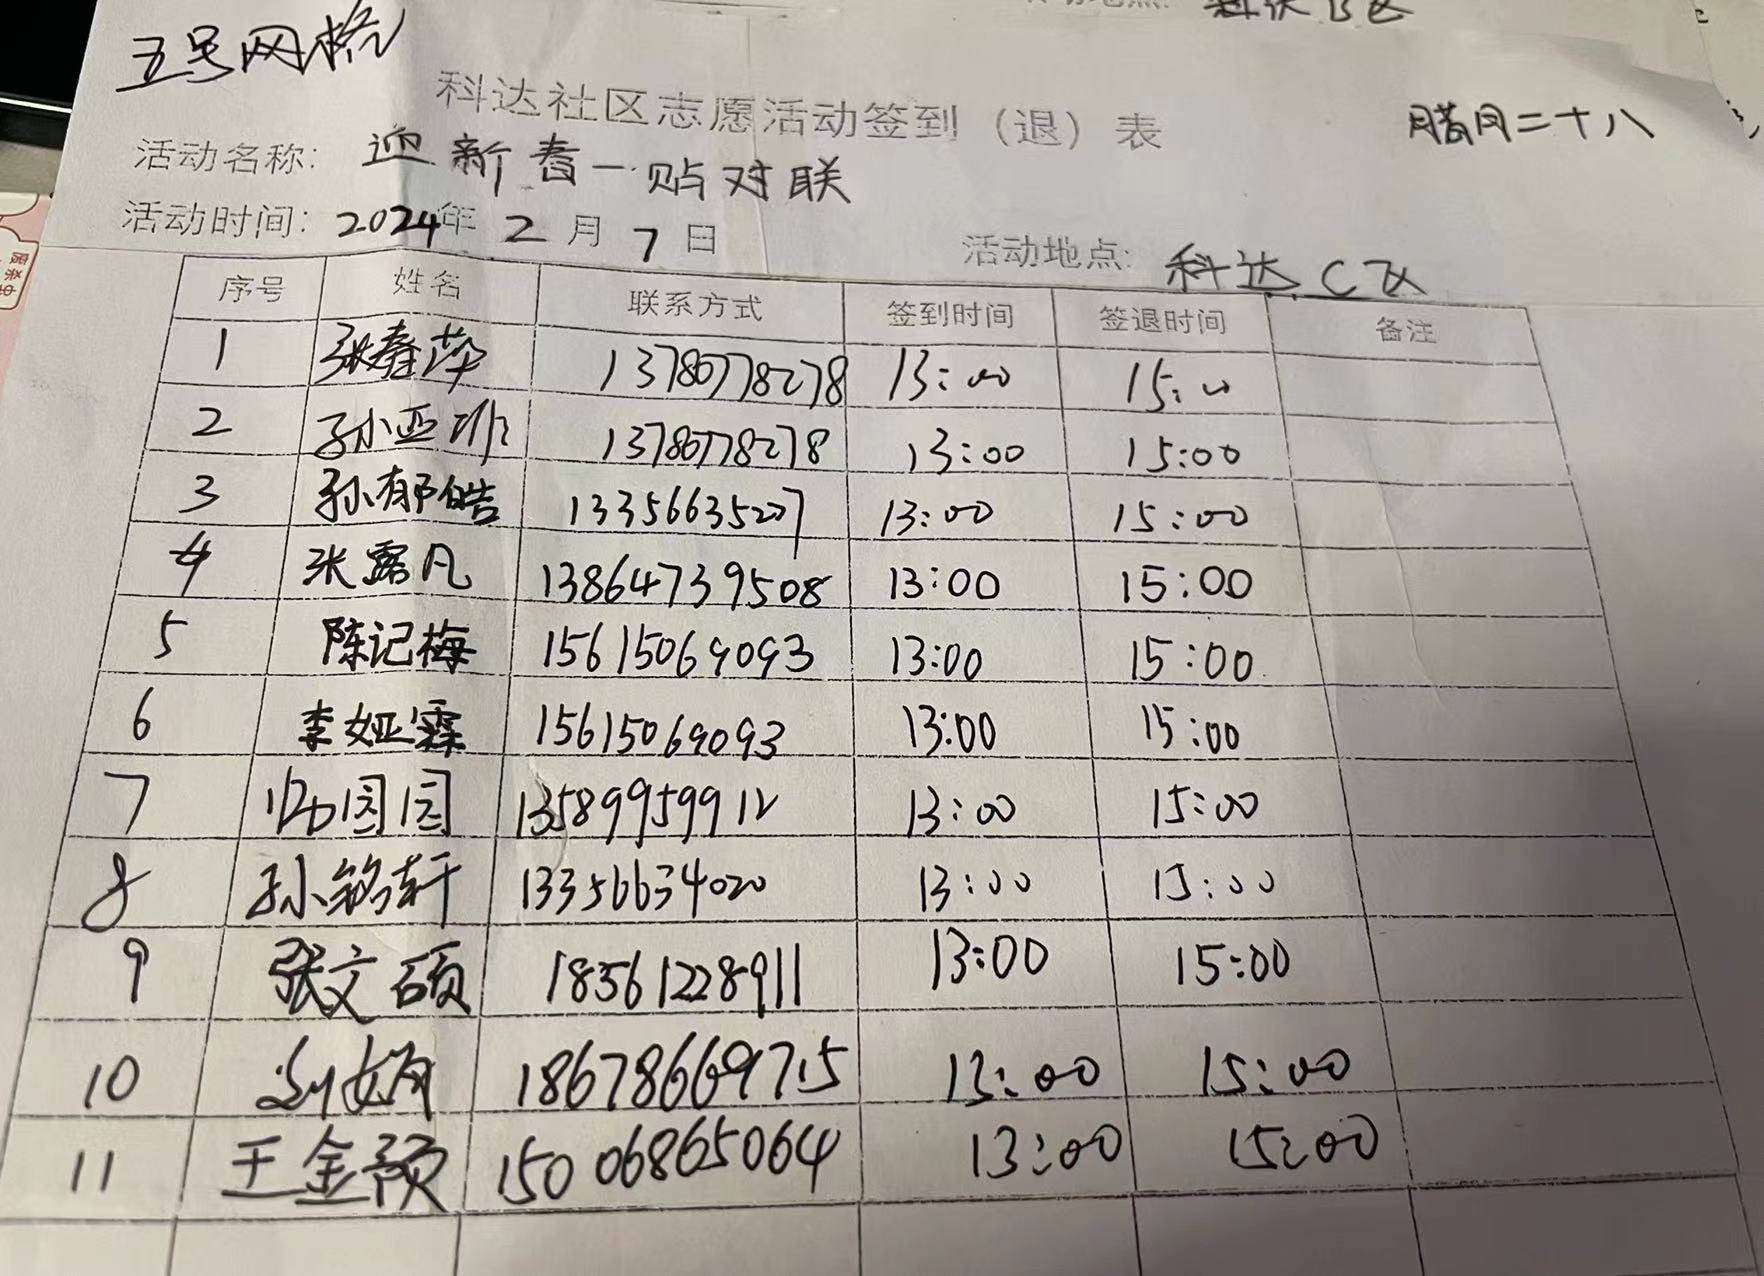 五号网格
科达社区志愿活动签到（退）表
腊月二十八
活动名称：迎新春一贴对联
活动时间：2024年2月7日 活动地点：科达C区
序号 姓名 联系方式 签到时间 签退时间 备注
1 张春萍 13780778278 13:00 15:00
2 孙亚非 13780778278 13:00 15:00
3 孙郁皓 13356635227 13:00 15:00
4 张露凡 13864739508 13:00 15:00
5 陈记梅 15615069093 13:00 15:00
6 李娅霖 15615069093 13:00 15:00
7 园园 13589959912 13:00 15:00
8 孙铭轩 13356634020 13:00 15:00
9 张文硕 18561228911 13:00 15:00
10 刘娟 18678669715 13:00 15:00
11 王金颜 15006865064 13:00 15:00